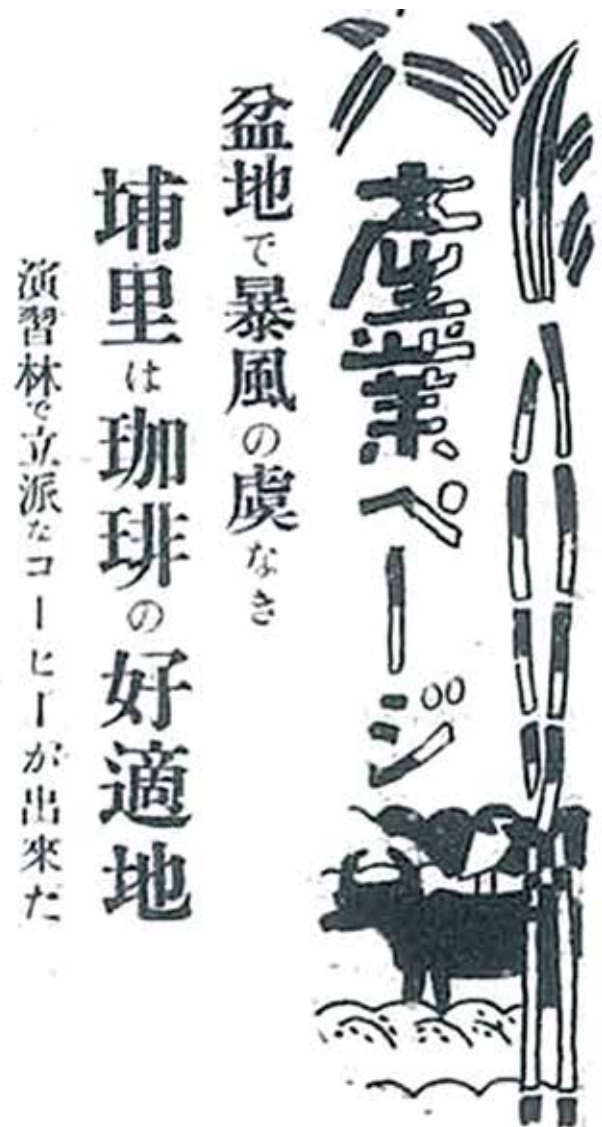 産業ページ
盆地で暴風の虞なき
埔里は珈琲の好適地
演習林で立派なコーヒーが出來だ